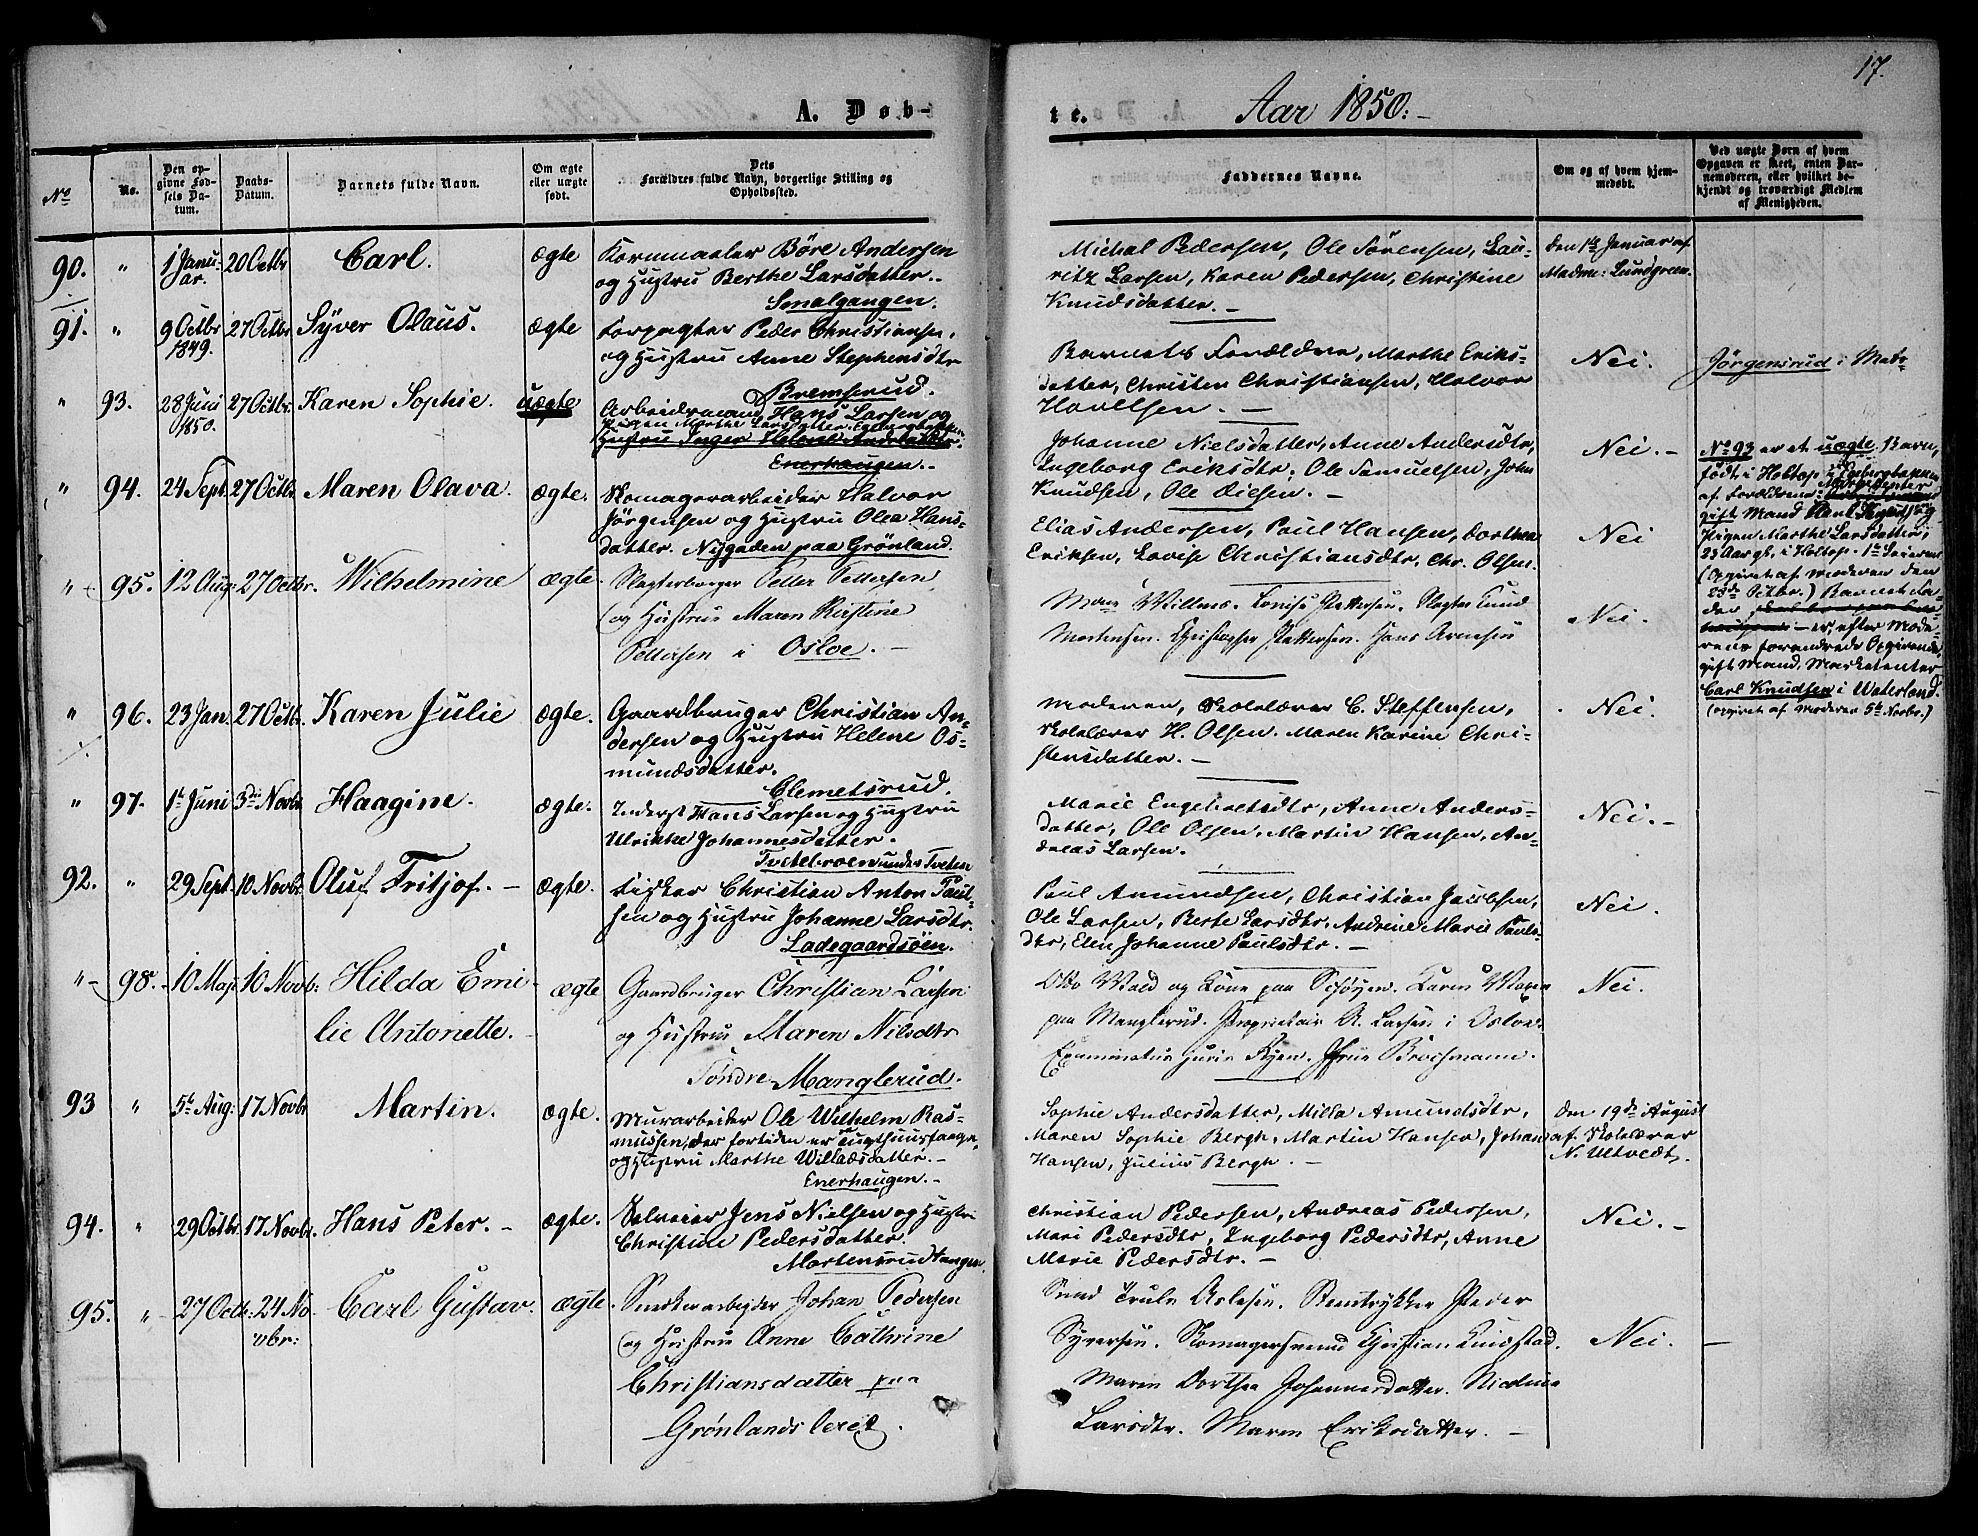 17.
A. Døb-
te. Aar 1850.-
No
No.
Den op-
givne Fød-
sels Da-
tum.
Daabs-
Datum.
Barnets fulde Navn.
Om ægte
eller uægte
født.
Dets
Forældres fulde Navn, borgerlige Stilling og
Opholdssted.
Faddernes Navne.
Om og af hvem hjem-
medøbt.
Ved uægte Børn af hvem
Opgaven er skeet, enten Bar-
nemoderen, eller hvilket be-
kjendt og troværdigt Medlem
af Menigheden.
90. " 1 Janu-
ar. 20 Octbr Carl. ægte
Kornmaaler Böre Andersen
og Hustru Berthe Larsdatter.-
Smalgangen.
Michal Pedersen, Ole Sörensen, Lau-
ritz Larsen, Karen Pedersen, Christine
Knudsdatter.-
den 1te Januar af
Madme: Lundgreen.
91. " 9 Octbr
1849. 27 Octbr Syver Olaus. ægte
Forpagter Peder Christiansen,
og Hustru Anne Stephensdtr
Bremsrud.
Barnets Forældre, Marthe Eriks-
datter, Christen Christiansen, Halvor
Nei.
Jörgensrud i
" 93. 28 Juni
1850. 27 Octbr. Karen Sophie. uægte
Arbeidsmand Hans Larsen og
Pigen Marthe Larsdatter.
Hustru Inger Helene Andersdtr.
Enerhaugen.-
Johanne Nielsdatter, Anne Andersdtr,
Ingeborg Eriksdtr, Ole Samuelsen, John
Knudsen, Ole Diesen.-
Nei.-
No 93 er et uægte Barn,
født i
af Forældrene
gift Mand
Pigen Marthe Larsdatter,
23 Aar gl, i
(Opgivet af Moderen den
23de Octbr.) Barnets Fa-
der
er, efter Mode-
rens forandrede Opgivende,
gift Mand, Marketenter
Carl Knudsen i Waterland.
(opgivet af Moderen 5te Novbr.)
" 94. 24 Sept. 27 Octbr. Maren Olava. ægte.
Skomagerarbeider Halvor
Jörgensen og Hustru Olea Hans-
datter. Nygaden paa Grönland.
Elias Andersen, Paul Hansen, Dorthea
Eriksen, Lovise Christiansdtr, Chr. Olsen.
Nei
" 95. 12 Aug: 27 Octbr. Wilhelmine ægte.
Slagterborger Petter Pettersen
og Hustrue Maren Kirstine
Pettersen i Osloe.-
Slagter Knud
Mortensen. Christopher Pettersen. Hans Arnesen
Nei.
" 96. 23 Jan. 27 Octbr. Karen Julie ægte.
Gaardbruger Christian An-
dersen og Hustru Helene Os-
mundsdatter.
Clemetsrud.
Moderen, Skolelærer C. Steffensen,
Skolelærer H. Olsen. Maren Karine Chri-
stensdatter.-
Nei.
" 97. 1te Juni 3die Novbr. Haagine. ægte.
Inderst Hans Larsen og Hustru
Ulrikke Johannesdatter.
Tvetebroen under Tveten
Marie Engebretsdtr, Anne Anders-
datter, Ole Olsen, Martin Hansen, An-
dreas Larsen.
Nei.-
92. " 29 Sept. 10 Novbr. Oluf Fritjof.- ægte.
Fisker Christian Anton Paul-
sen og Hustru Johanne Larsdtr.
Ladegaardsöen.
Paul Amundsen, Christian Jacobsen,
Ole Larsen, Berte Larsdtr. Andrine Marie Pauls-
dtr, Elen Johanne Paulsdtr.-
Nei.
" 98. 10 Maj. 10 Novbr. Hilda Emi-
lie Antonette.- ægte
Gaardbruger Christian Larsen
og Hustrue Maren Nilsdtr
Söndre Manglerud.
paa Manglerud. Proprietair A. Larsen i Osloe.
Examinatus juris Kyen. Frue Brochmann.
Nei.
93 " 5te Aug: 17 Novbr Martin. ægte.
Murarbeider Ole Wilhelm Ras-
mussen, der fortiden er Tugthuusfange,
og Hustru Marthe Willadsdatter.-
Enerhaugen.-
Sophie Andersdatter, Milla Amundsdtr,
Maren Sophie Bergh, Martin Hansen, Johan
Hansen, Julius Bergh.-
den 19de August
af Skolelærer
N. Ultvedt.
94. " 29 Octbr. 17 Novbr. Hans Peter.- ægte.
Selveier Jens Nielsen og Hustru
Christine Pedersdatter.
Martensrudtangen.
Christian Pedersen, Andreas Pedersen,
Mari Pedersdtr, Ingeborg Pedersdtr, Anne
Marie Pedersdtr.-
Nei.-
95. " 27 Octb: 24 No-
vbr: Carl Gustav. ægte.
Snedkerarbejder Johan Pedersen
og Hustrue Anne Cathrine
Christiansdatter paa
Grönlandsleret.
Svend Truls Aslesen. Steentrykker Peder
Syversen. Skomagersvend Christian Knudstad.
Maren Dorthea Johannesdatter.
Larsdtr. Maren Eriksdatter.-
Nei.